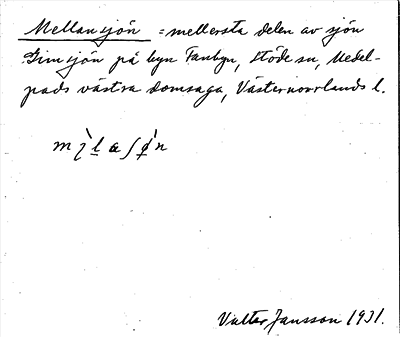 Mellansjön = mellersta delen av sjön
Gimsjön på byn Fanbyn, Stöde sn, Medel-
pads västra domsaga, Västernorrlands l.
Valter Jansson 1931.